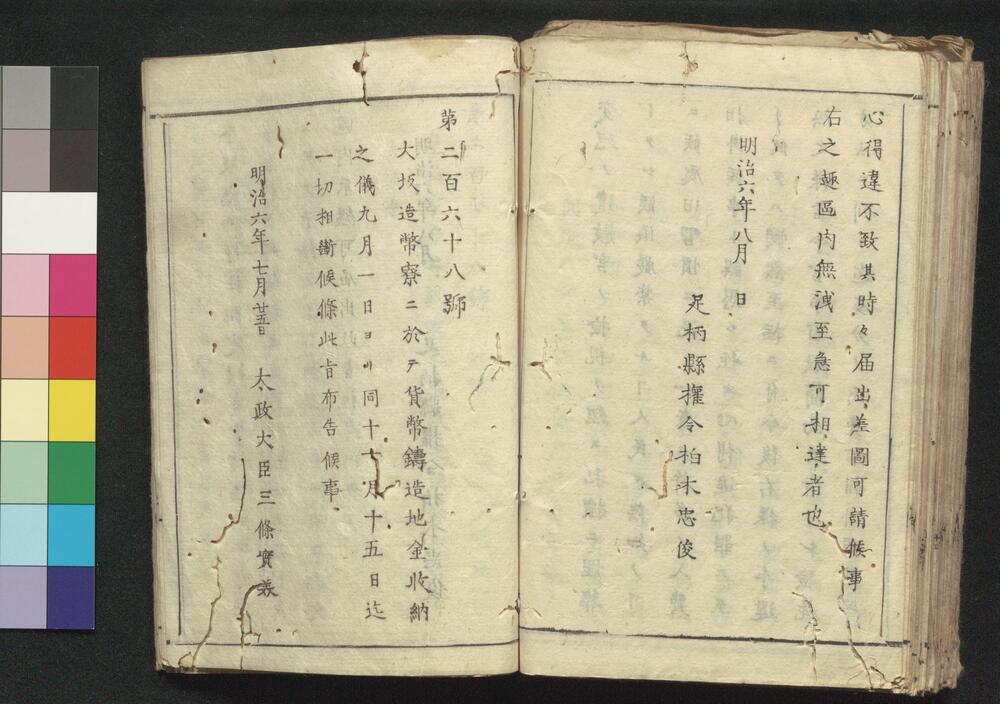 心得違不致其時々届出差圖可請候事
右之趣區内無洩至急可相達者也
明治六年八月 日
足柄縣權令柏木忠俊
第二百六十八號
大坂造幣寮ニ於テ貨幣鑄造地金收納
之儀九月一日ヨリ同十一月十五日迄
一切相斷候條此旨布告候事
明治六年七月廿五日 太政大臣三條實美